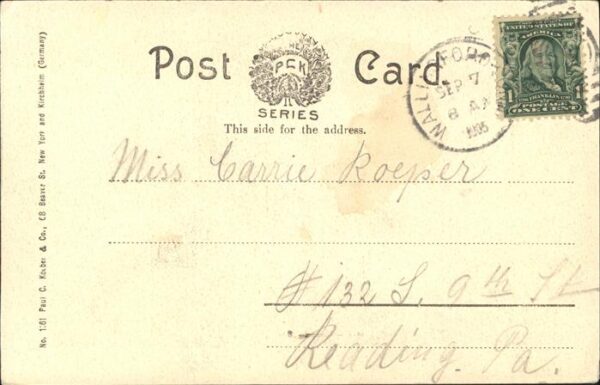 Post Card.
PCK
SERIES
This side for the address.
WALLINGFORD
SEP 7
8 AM
1905
UNITED STATES OF
AMERICA
FRANKLIN
1 POSTAGE 1
Miss Carrie Roeper
#132 S. 9th St
Reading. Pa.
No. 161 Paul C. Koeber & Co., 68 Beaver St. New York and Kirchheim (Germany)